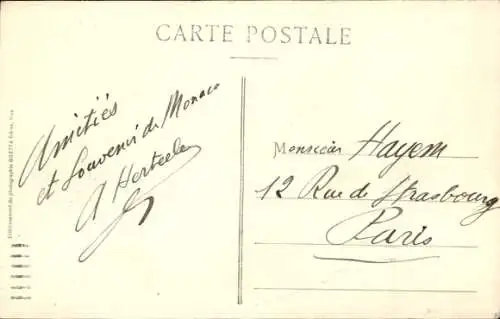 CARTE POSTALE
Amitiés
et Souvenir de Monaco
A Herteele
Monsieur Hayem
12 Rue de Strasbourg
Paris